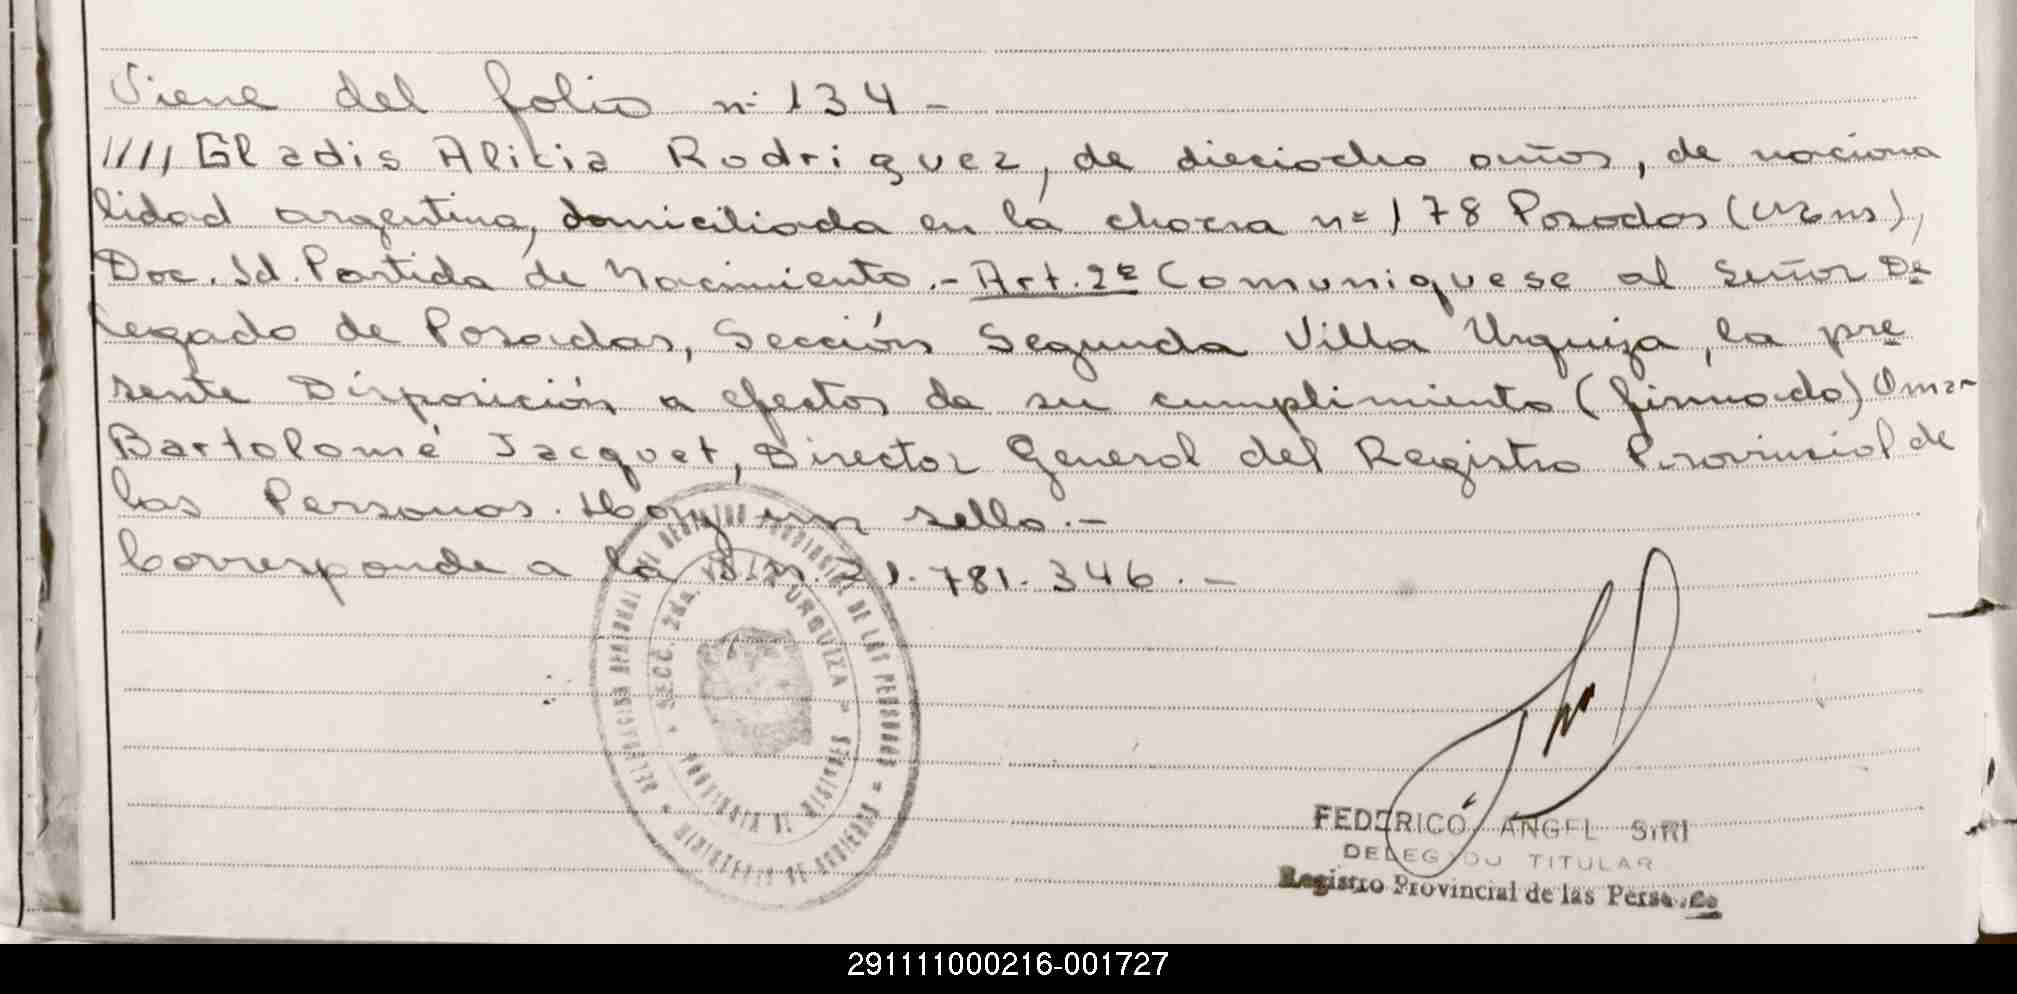 Viene del folio nº 134 -
//// Gladis Alicia Rodriguez, de dieciocho años, de naciona
lidad argentina, domiciliada en la chacra nº 178 Posadas (Mzns),
Doc. Id. Partida de Nacimiento.- Art. 2º Comuniquese al Señor De
legado de Posadas, Sección Segunda Villa Urquiza, la pre
sente Disposición a efectos de su cumplimiento (firmado) Omar
Bartolomé Jacquet, Director General del Registro Provincial de
las Personas. Hay un sello.-
Corresponde a la 21.781.346.-
SECC. 2da. VILLA URQUIZA
FEDERICO ANGEL SIRI
DELEGADO TITULAR
Registro Provincial de las Personas
291111000216-001727